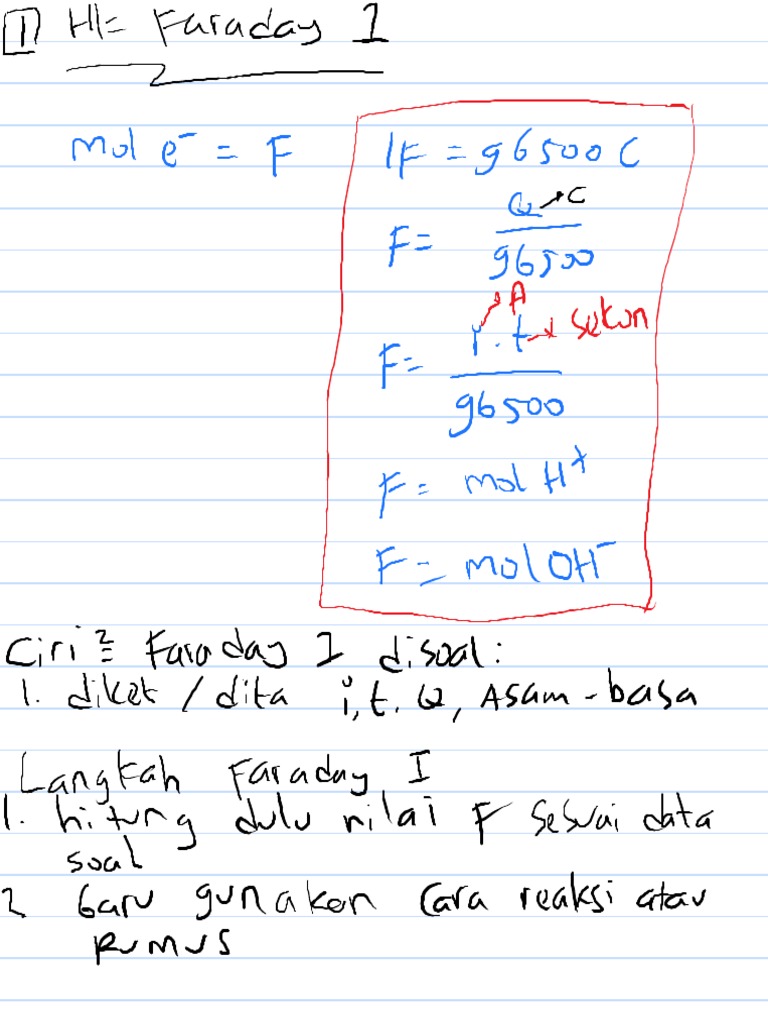 1 Hk= Faraday 1
mol e⁻ = F
1F = 96500 C
F = Q → C / 96500
F = i → A . t → sekon / 96500
F = mol H⁺
F = mol OH⁻
Ciri² = Faraday I disoal:
1. diket / dita i, t. Q, Asam - basa
Langkah Faraday I
1. hitung dulu nilai F sesuai data
soal
2 baru gunakan cara reaksi atau
rumus